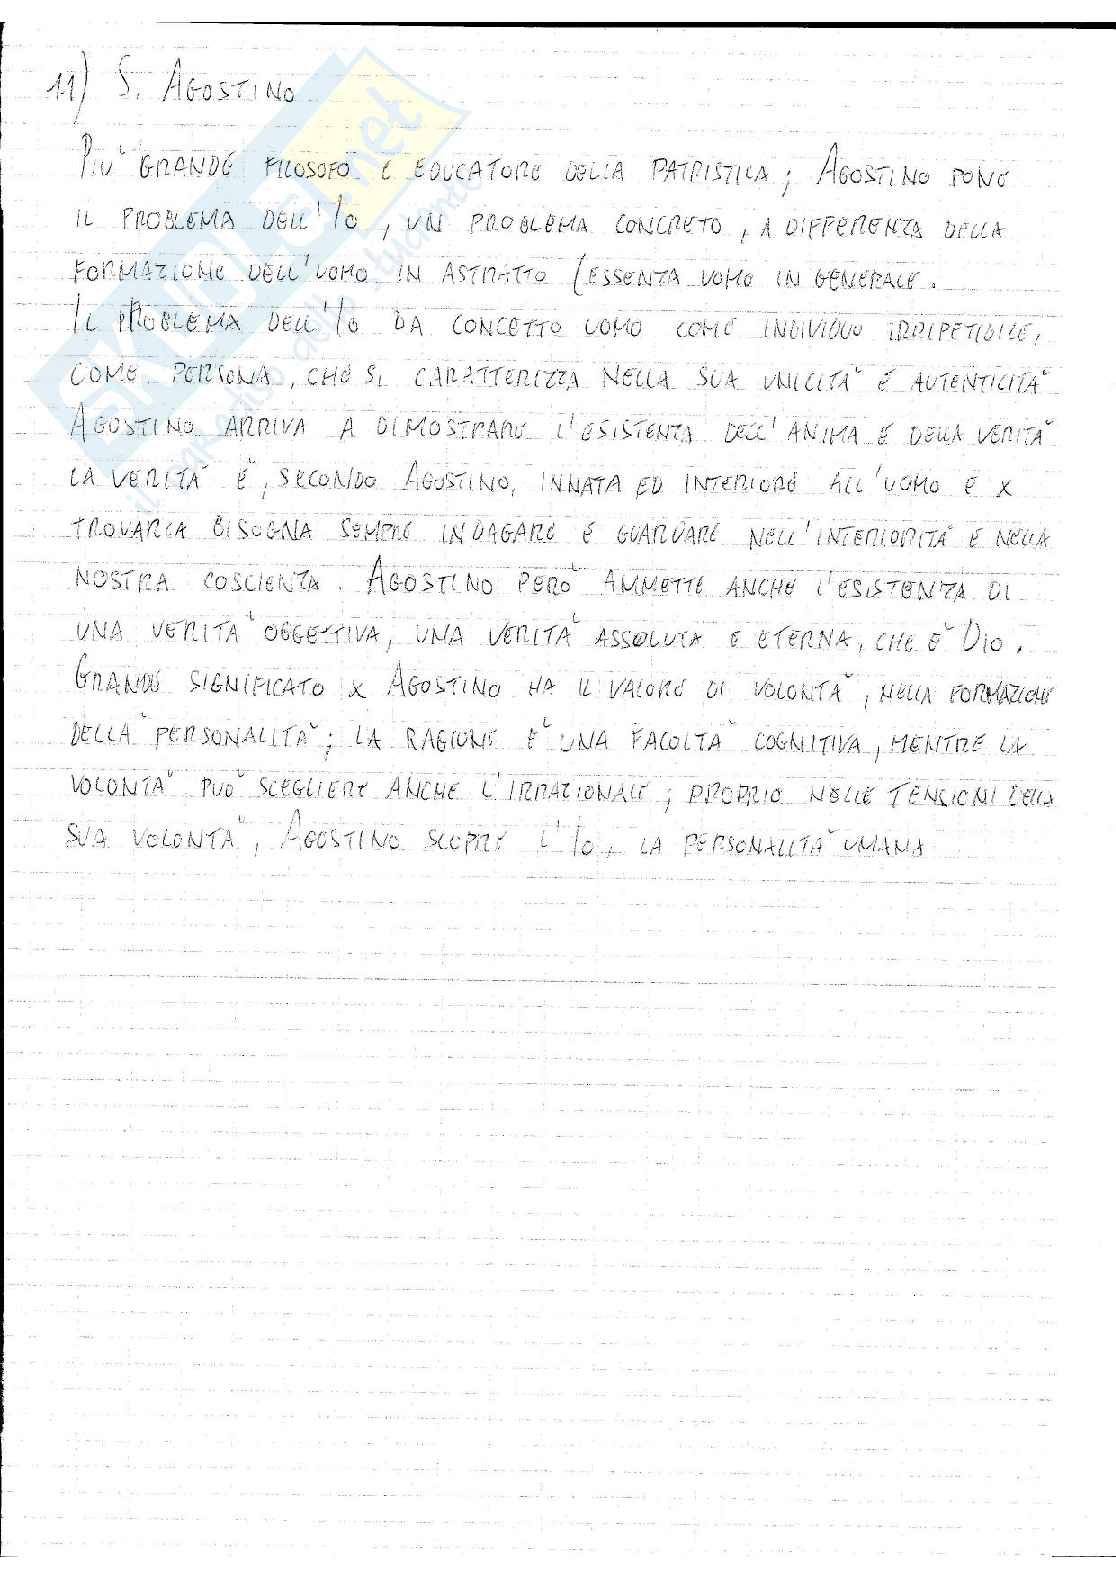 11) S. AGOSTINO
PIU' GRANDE FILOSOFO E EDUCATORE DELLA PATRISTICA; AGOSTINO PONE
IL PROBLEMA DELL'IO, UN PROBLEMA CONCRETO, A DIFFERENZA DELLA
FORMAZIONE DELL'UOMO IN ASTRATTO (ESSENZA UOMO IN GENERALE.
IL PROBLEMA DELL'IO DA CONCETTO UOMO COME INDIVIDUO IRRIPETIBILE,
COME PERSONA, CHE SI CARATTERIZZA NELLA SUA UNICITA' E AUTENTICITA'
AGOSTINO ARRIVA A DIMOSTRARE L'ESISTENZA DELL'ANIMA E DELLA VERITA'
LA VERITA' E', SECONDO AGOSTINO, INNATA ED INTERIORE ALL'UOMO E X
TROVARLA BISOGNA SEMPRE INDAGARE E GUARDARE NELL'INTERIORITA' E NELLA
NOSTRA COSCIENZA. AGOSTINO PERO' AMMETTE ANCHE L'ESISTENZA DI
UNA VERITA' OGGETTIVA, UNA VERITA' ASSOLUTA E ETERNA, CHE E' DIO.
GRANDE SIGNIFICATO X AGOSTINO HA IL VALORE DI VOLONTA', NELLA FORMAZIONE
DELLA PERSONALITA'; LA RAGIONE E' UNA FACOLTA' COGNITIVA, MENTRE LA
VOLONTA' PUO' SCEGLIERE ANCHE L'IRRAZIONALE; PROPRIO NELLE TENSIONI DELLA
SUA VOLONTA', AGOSTINO SCOPRE L'IO, LA PERSONALITA' UMANA